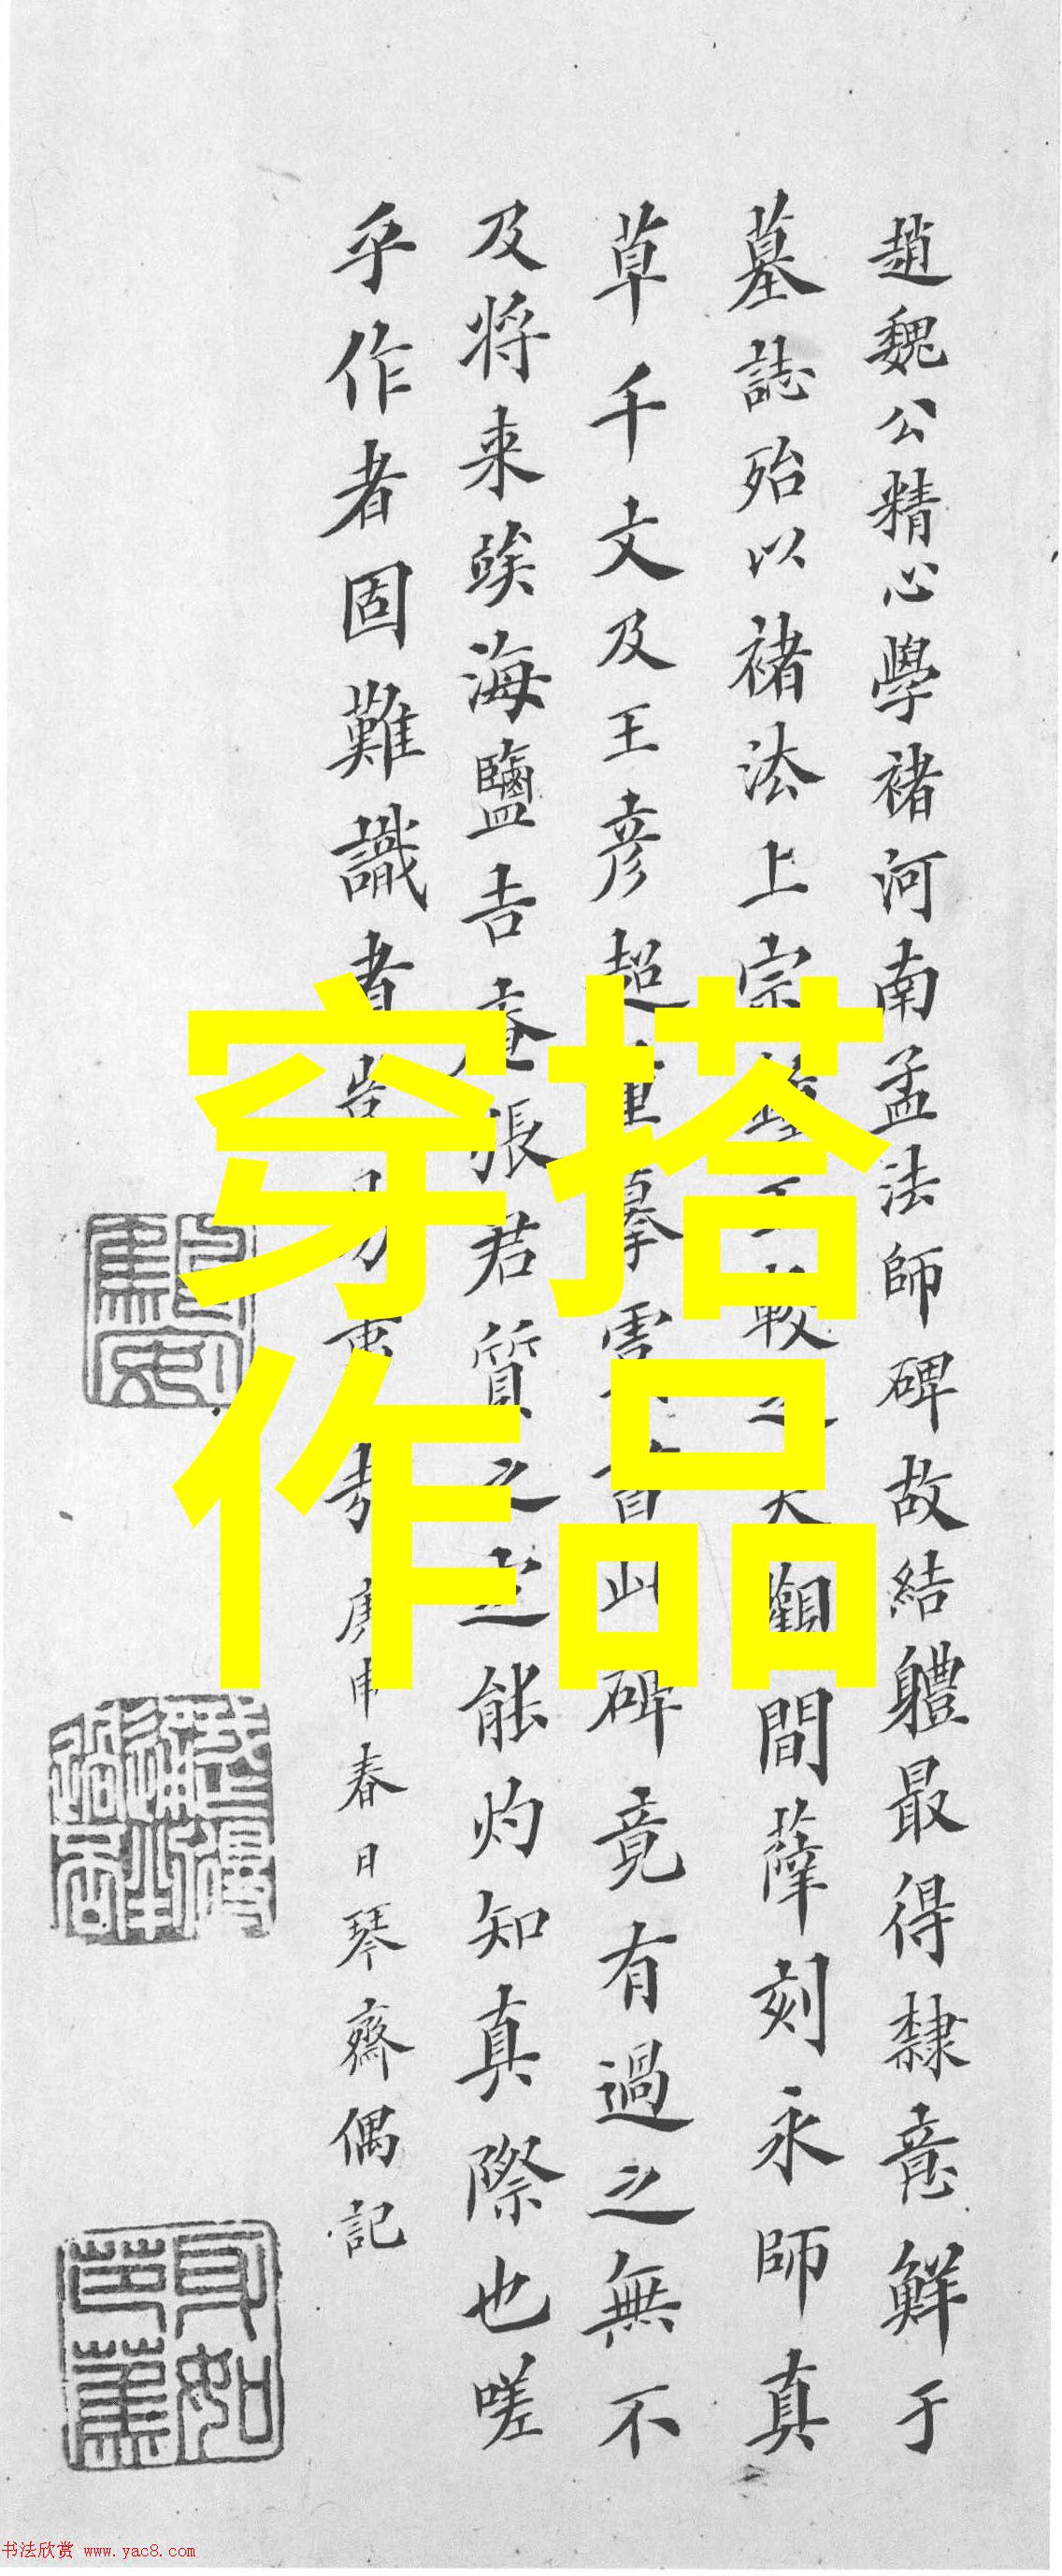 趙魏公精心學褚河南孟法師碑故結軆最得隸意鮮于
墓誌殆以褚法上宗 間薛刻永師真
草千文及王彦超 摹 碑竟有過之無不
及将来竢海鹽吉 張君質之 能灼知真際也嗟
乎作者固難識者 庚申春日琴齋偶記
穿搭
作品
书法欣赏 www.yac8.com